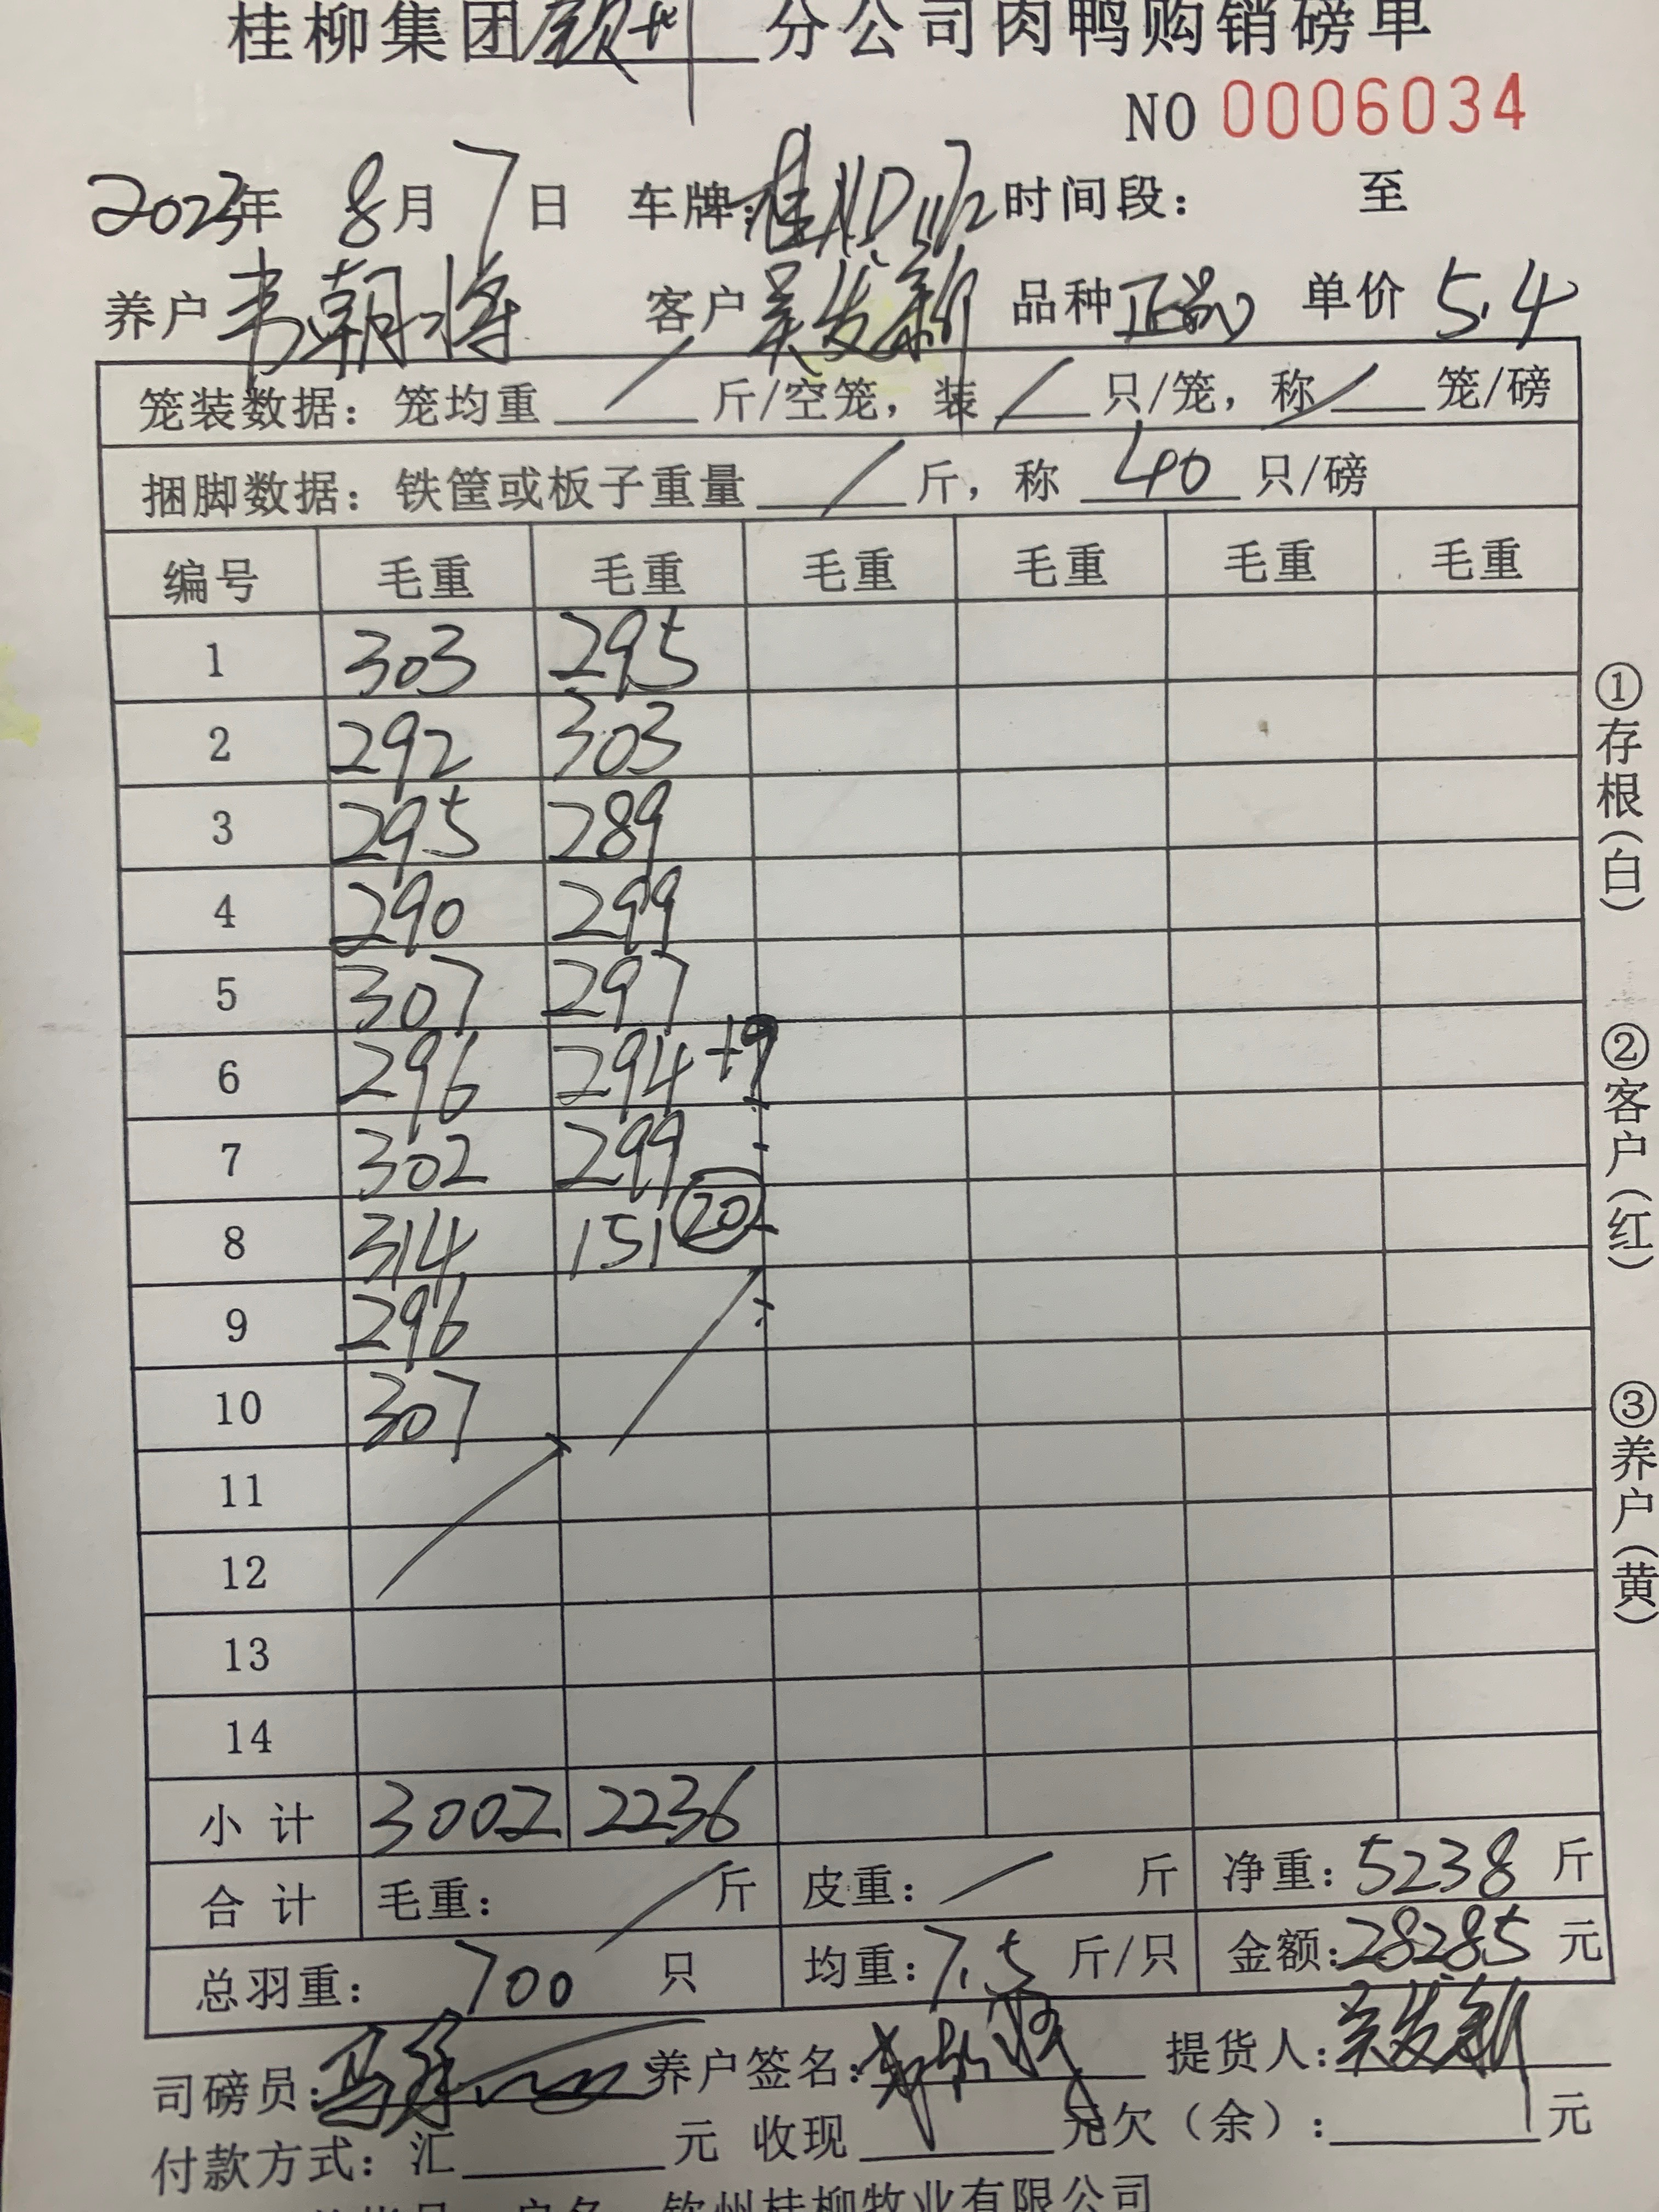 桂柳集团钦州分公司肉鸭购销磅单
NO 0006034
2023年 8月 7日 车牌: 时间段: 至
养户 韦朝将 客户 吴发新 品种 正品 单价 5.4
笼装数据: 笼均重 / 斤/空笼, 装 / 只/笼, 称 / 笼/磅
捆脚数据: 铁筐或板子重量 / 斤, 称 40 只/磅
编号 毛重 毛重 毛重 毛重 毛重 毛重
1 303 295
2 292 303
3 295 289
4 290 299
5 307 297
6 296 294 +9
7 302 299
8 314 151 20
9 296
10 307
11
12
13
14
小计 3002 2236
合计 毛重: / 斤 皮重: / 斤 净重: 5238 斤
总羽重: 700 只 均重: 7.5 斤/只 金额: 28285 元
司磅员: 养户签名: 提货人: 吴发新
付款方式: 汇 元 收现 元 欠(余): 元
户名 钦州桂柳牧业有限公司
①存根(白)
②客户(红)
③养户(黄)